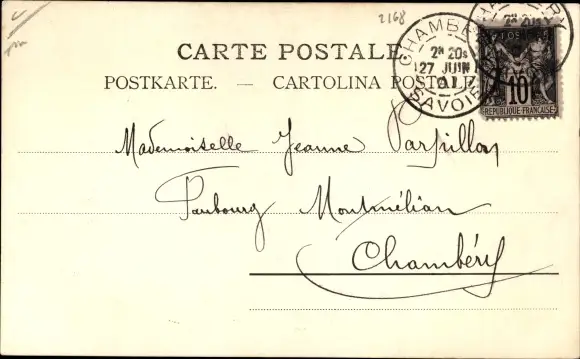 2168
CARTE POSTALE
POSTKARTE. — CARTOLINA POSTALE
CHAMBERY
2E 20S
27 JUIN
01
SAVOIE
10
REPUBLIQUE FRANÇAISE
Mademoiselle Jeanne
Faubourg Montmélian
Chambéry